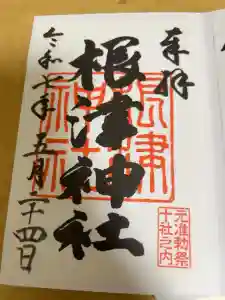 奉拝
根津神社
根津神社
元准勅祭
十社之内
令和七年五月二十四日